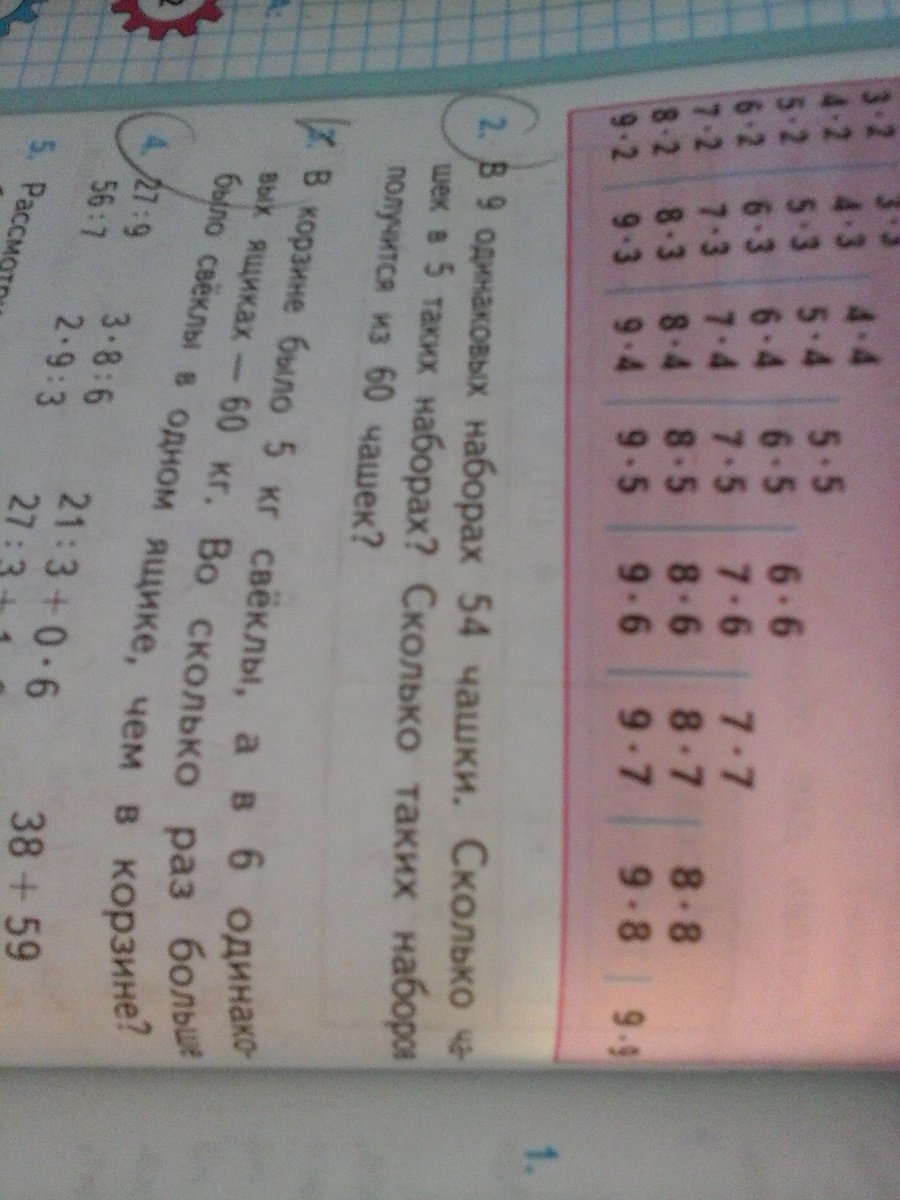 3·2 3·3
4·2 4·3 4·4
5·2 5·3 5·4 5·5
6·2 6·3 6·4 6·5 6·6
7·2 7·3 7·4 7·5 7·6 7·7
8·2 8·3 8·4 8·5 8·6 8·7 8·8
9·2 9·3 9·4 9·5 9·6 9·7 9·8 9·9
2. В 9 одинаковых наборах 54 чашки. Сколько ча-
шек в 5 таких наборах? Сколько таких наборов
получится из 60 чашек?
3. В корзине было 5 кг свёклы, а в 6 одинако-
вых ящиках — 60 кг. Во сколько раз больше
было свёклы в одном ящике, чем в корзине?
4. 27:9 3·8:6 21:3+0·6 38+59
56:7 2·9:3 27:3+1
5.
1.